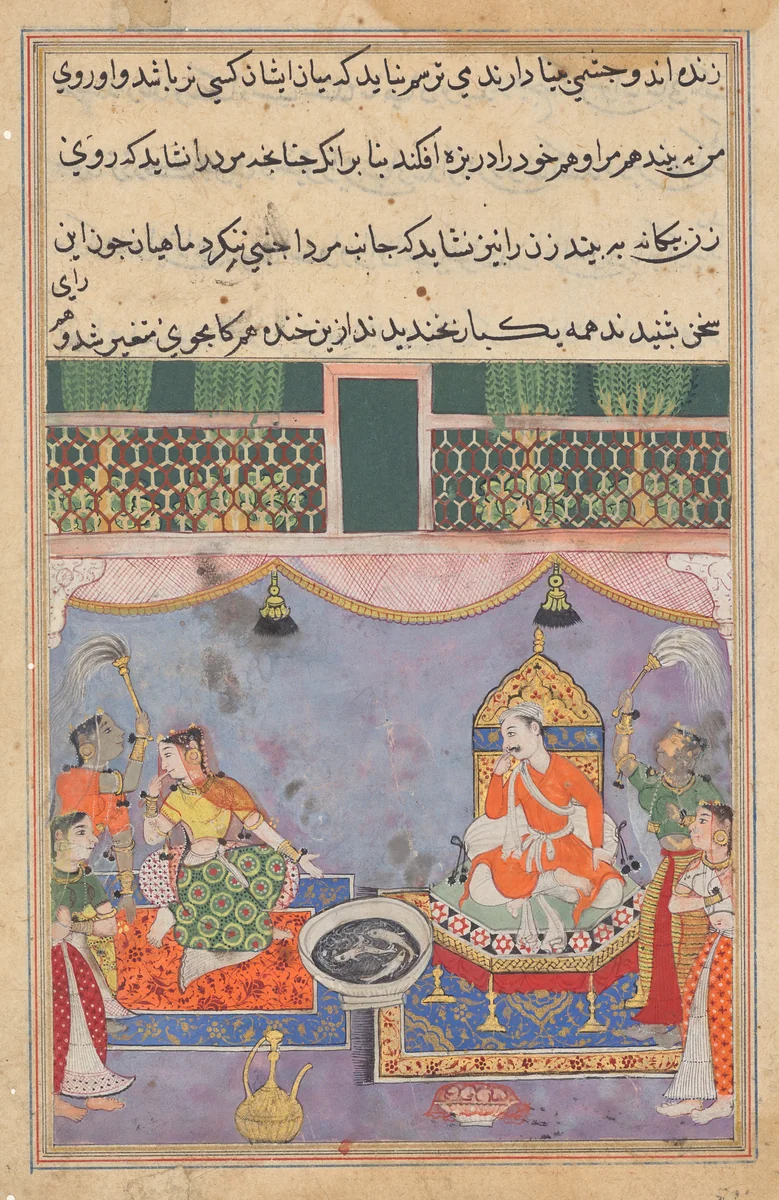 زنده اند و جشمي بینا دارند مي ترسم بناید که میان ایشان کسي نر باشد و او روي
من به بیند هم مرا و هم خود را در بزه افکند بنا بر انک جنانجه مرد را نشاید که روي
زن بیکانه به بیند زن را نیز نشاید که جانب مرد اجنبي ننکرد ماهیان جون این
سخن بشنیدند همه یکبار بخندیدند از ین خنده هم کامجوي متغیر شد و هم
راي